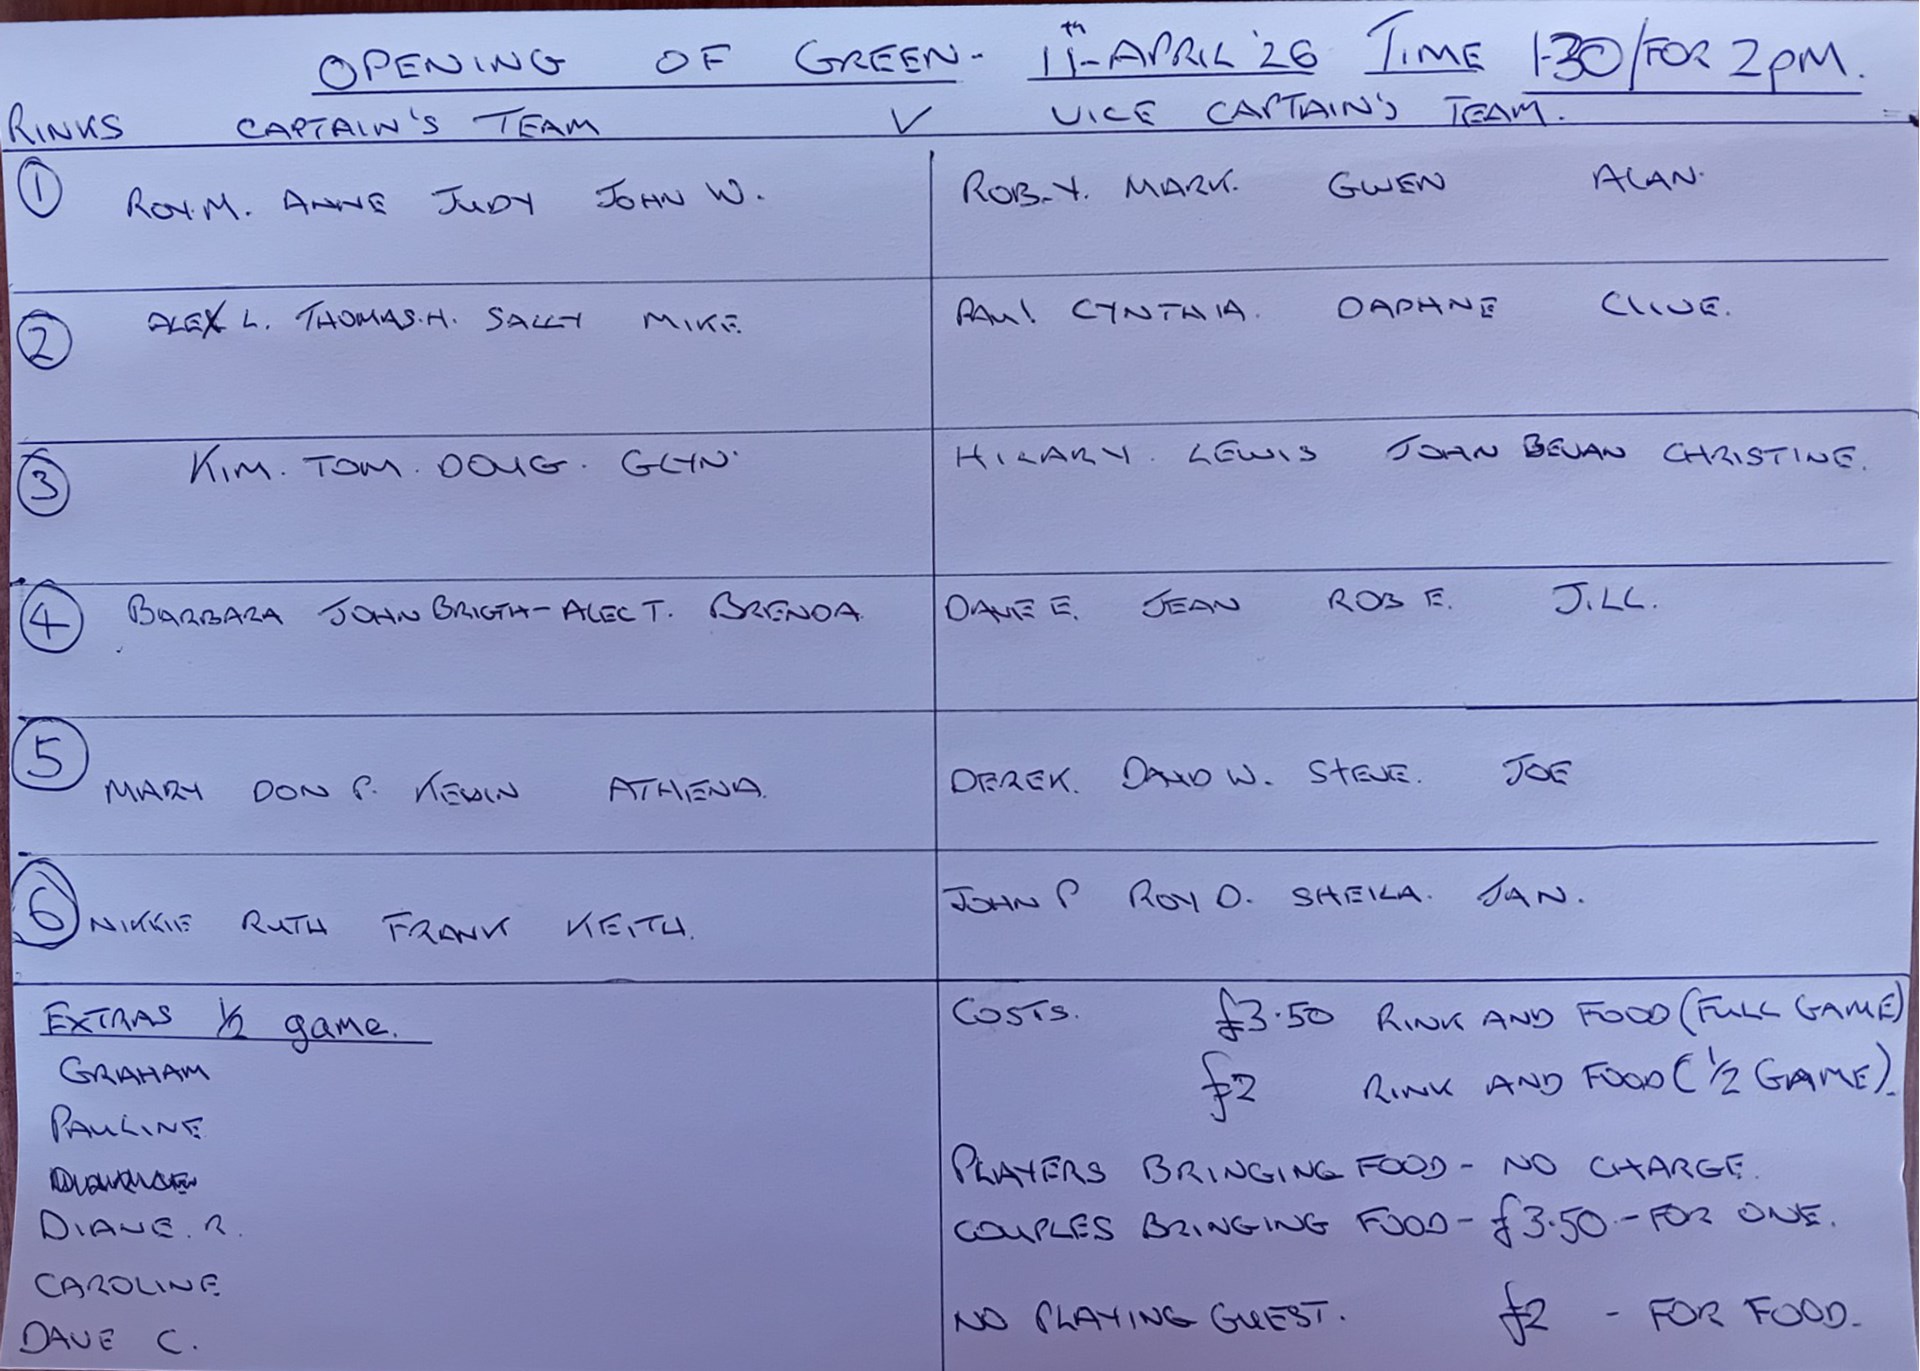 OPENING OF GREEN - 11th APRIL '26 TIME 1-30/FOR 2PM.
RINKS CAPTAIN'S TEAM V VICE CAPTAIN'S TEAM.
1 ROY.M. ANNE JUDY JOHN W. ROB.Y. MARK. GWEN ALAN.
2 ALEX L. THOMAS.H. SALLY MIKE. PAUL CYNTHIA. DAPHNE CLIVE.
3 KIM. TOM. DOUG. GLYN. HILARY. LEWIS JOHN BEVAN CHRISTINE.
4 BARBARA JOHN BRIGTH - ALEC T. BRENDA. DAVE E. JEAN ROB E. JILL.
5 MARY DON P. KEVIN ATHENA. DEREK. DAVID W. STEVE. JOE
6 NIKKIE RUTH FRANK KEITH. JOHN P ROY D. SHEILA. JAN.
EXTRAS 1/2 game.
GRAHAM
PAULINE
DIANE. R.
CAROLINE
DAVE C.
COSTS. £3.50 RINK AND FOOD (FULL GAME)
£2 RINK AND FOOD (1/2 GAME).
PLAYERS BRINGING FOOD - NO CHARGE.
COUPLES BRINGING FOOD - £3.50 - FOR ONE.
NO PLAYING GUEST. £2 - FOR FOOD.